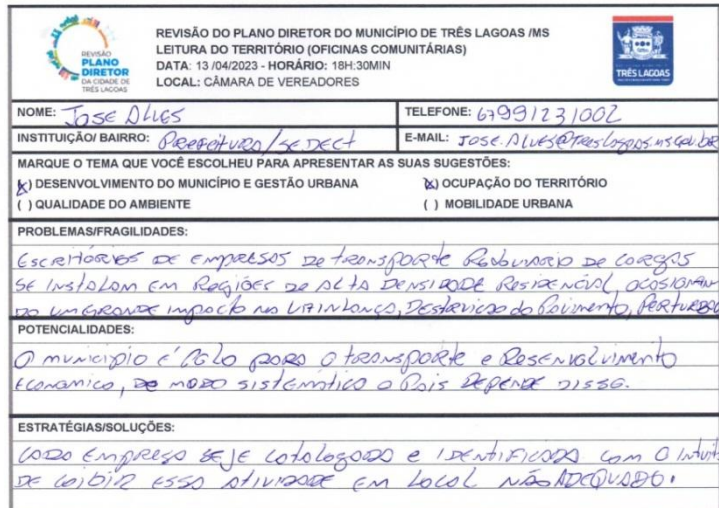 REVISÃO
PLANO
DIRETOR
DA CIDADE DE
TRÊS LAGOAS
REVISÃO DO PLANO DIRETOR DO MUNICÍPIO DE TRÊS LAGOAS /MS
LEITURA DO TERRITÓRIO (OFICINAS COMUNITÁRIAS)
DATA: 13 /04/2023 - HORÁRIO: 18H:30MIN
LOCAL: CÂMARA DE VEREADORES
TRÊS LAGOAS
NOME: JOSE ALVES
TELEFONE: 67991231002
INSTITUIÇÃO/ BAIRRO: PREFEITURA/SEDECT
E-MAIL: JOSE.ALVES@TresLagoas.ms.gov.br
MARQUE O TEMA QUE VOCÊ ESCOLHEU PARA APRESENTAR AS SUAS SUGESTÕES:
(x) DESENVOLVIMENTO DO MUNICÍPIO E GESTÃO URBANA
(x) OCUPAÇÃO DO TERRITÓRIO
( ) QUALIDADE DO AMBIENTE
( ) MOBILIDADE URBANA
PROBLEMAS/FRAGILIDADES:
ESCRITÓRIOS DE EMPRESAS DE TRANSPORTE RODOVIARIO DE CARGAS
SE INSTALAM EM REGIÕES DE ALTA DENSIDADE RESIDENCIAL, OCASIONAN
DO UM GRANDE IMPACTO NA VIZINHANÇA, DESTRUICAO do PAVIMENTO,
POTENCIALIDADES:
O MUNICIPIO É POLO PARA O TRANSPORTE E DESENVOLVIMENTO
ECONOMICO, DE MODO SISTEMATICO O PAIS DEPENDE DISSO.
ESTRATÉGIAS/SOLUÇÕES:
CADA EMPRESA SEJE CATALOGADA E IDENTIFICADA COM O INTUIT
DE COIBIR ESSA ATIVIDADE EM LOCAL NÃO ADEQUADO.